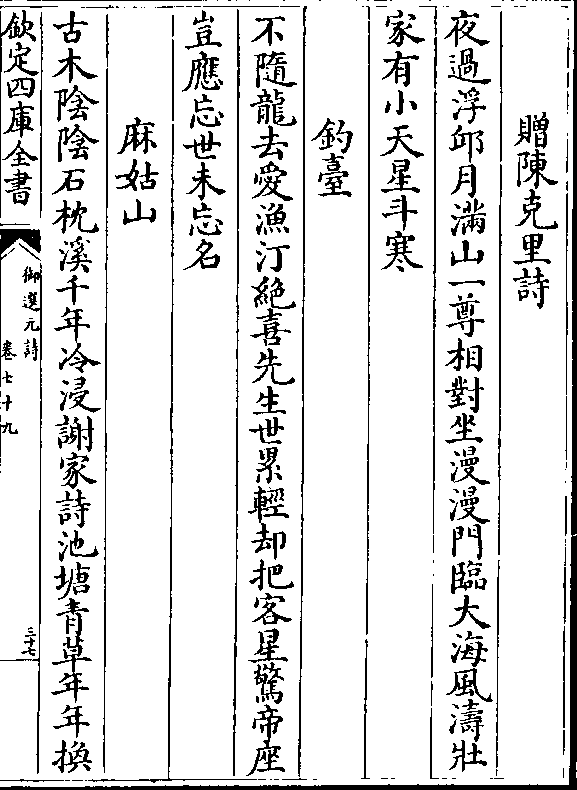 贈陳克里詩
夜過浮邱月滿山一尊相對坐漫漫門臨大海風濤壯
家有小天星斗寒
釣臺
不隨龍去愛漁汀絶喜先生世累輕却把客星驚帝座
豈應忘世未忘名
麻姑山
古木陰陰石枕溪千年冷浸謝家詩池塘青草年年換
欽定四庫全書
御選元詩
卷七十九
三十七